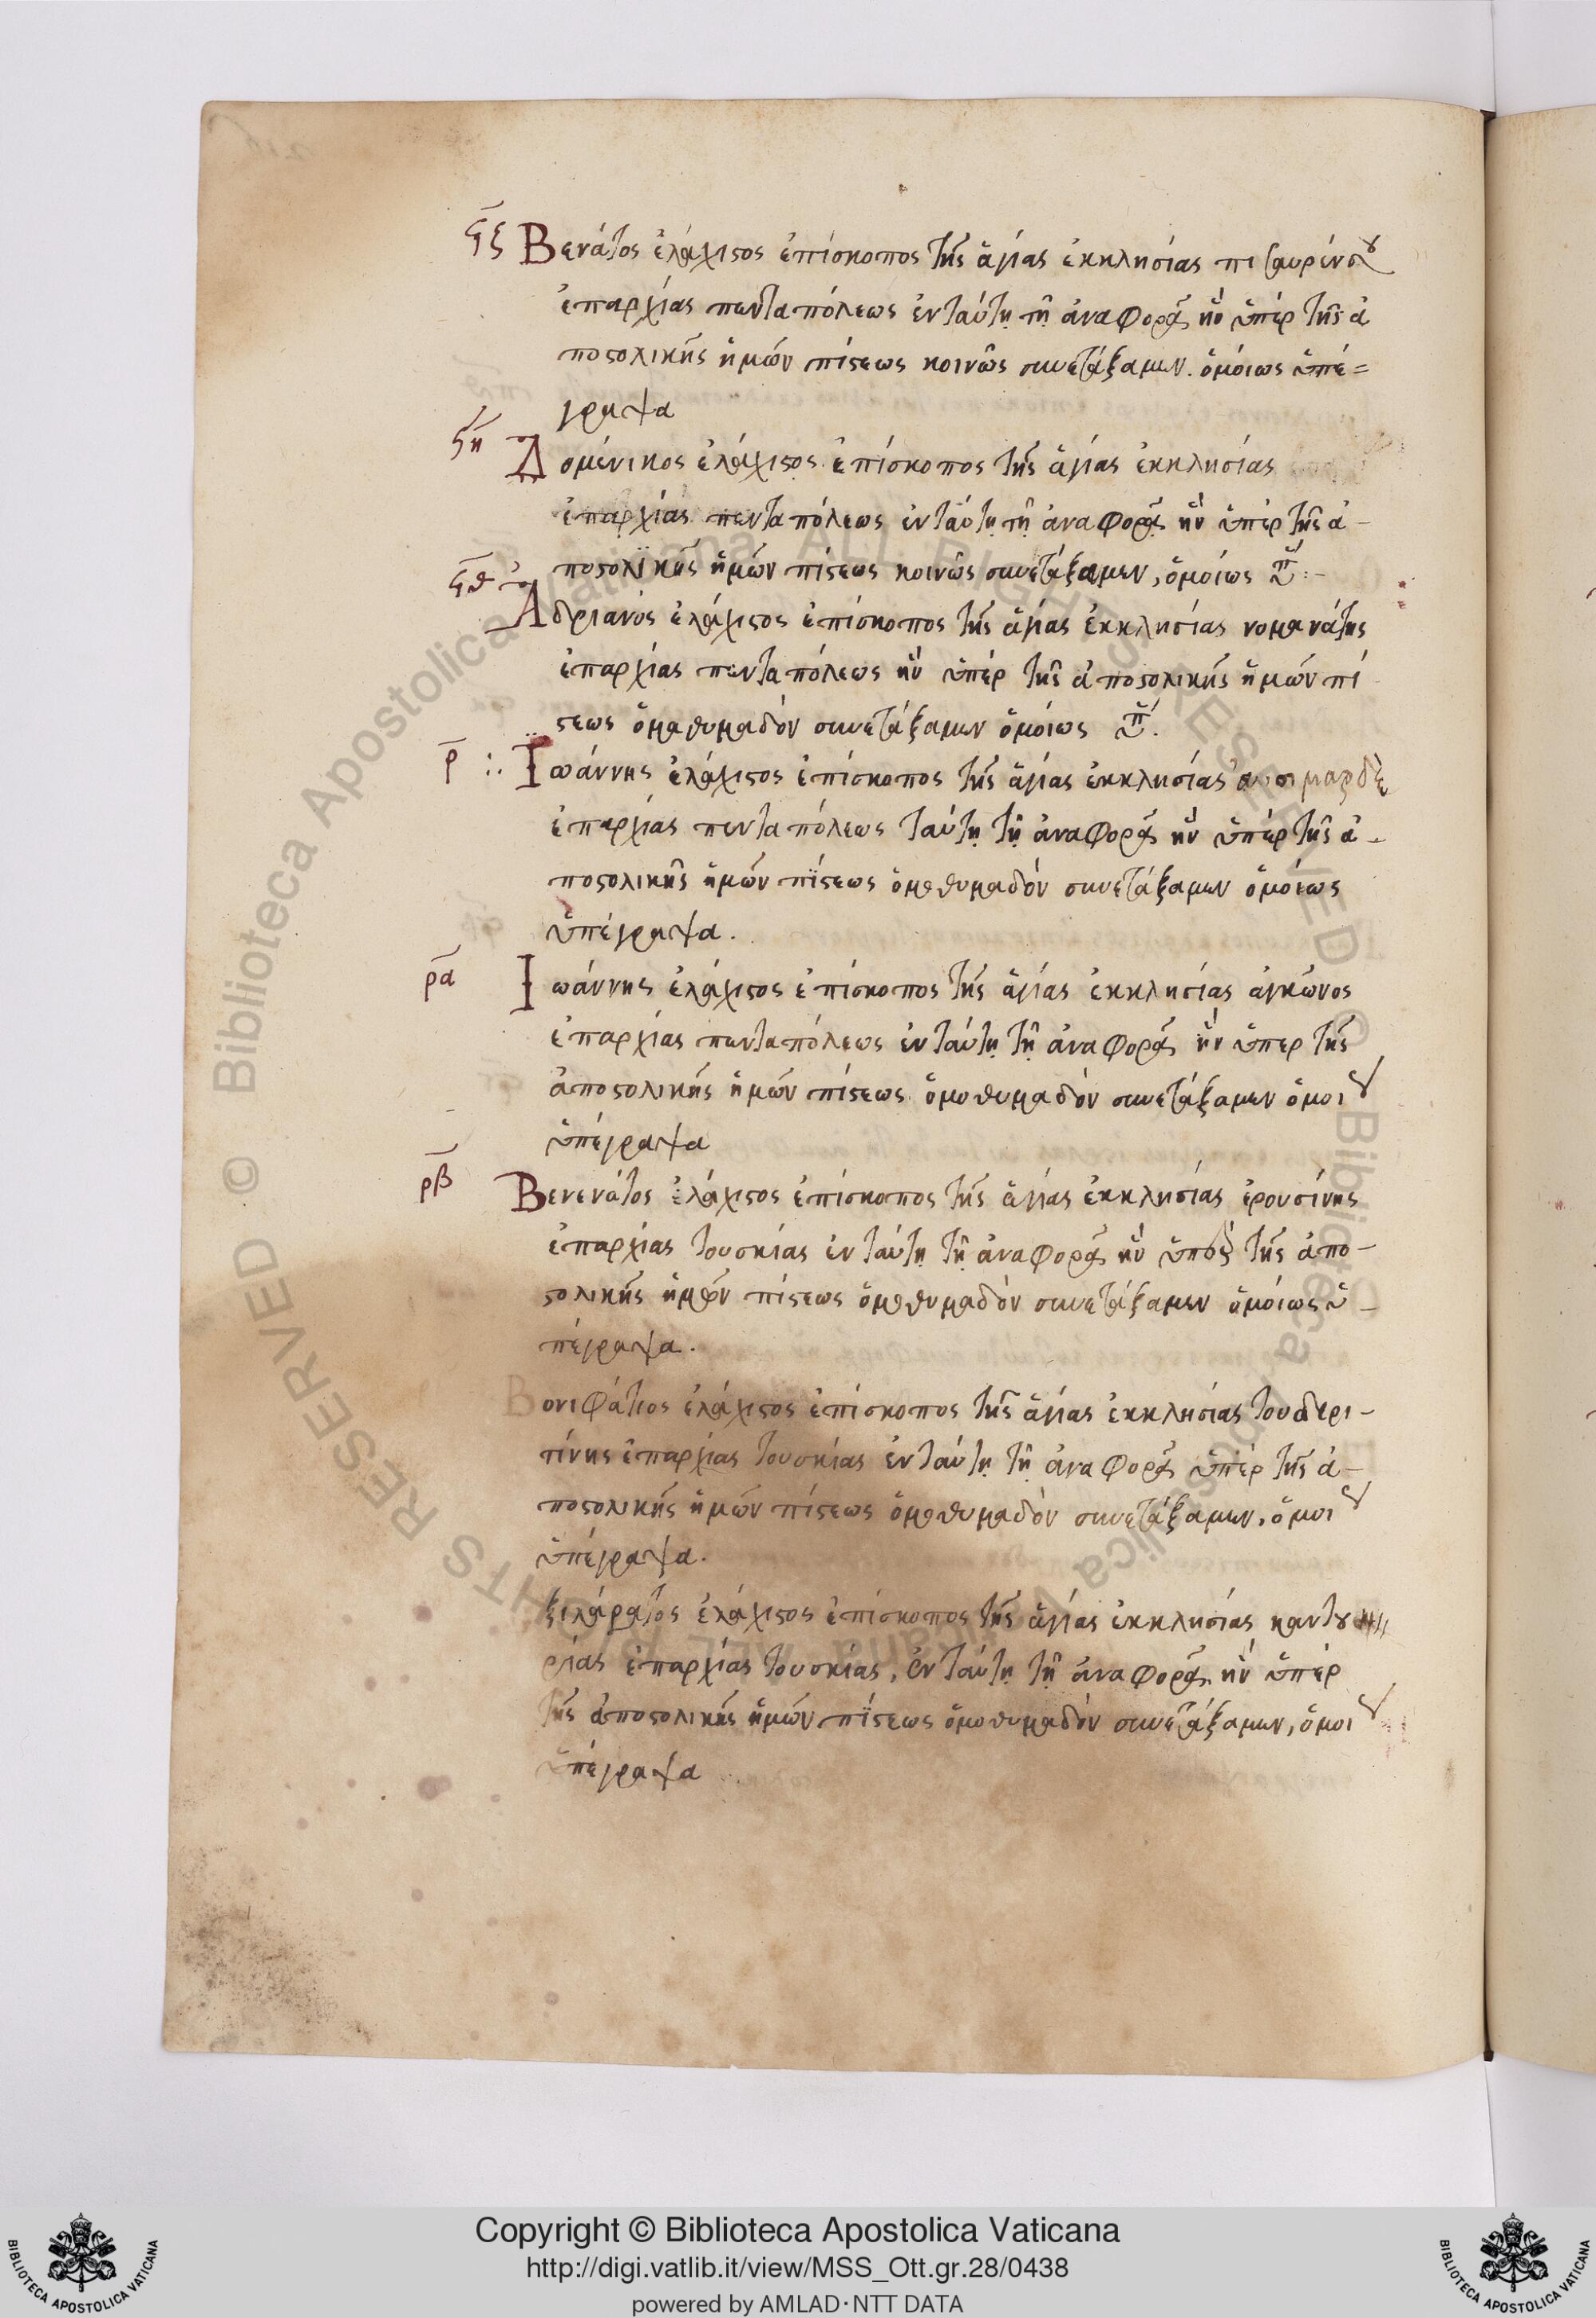 ϟζ Βενάτος ἐλάχιστος ἐπίσκοπος τῆς ἁγίας ἐκκλησίας πισαυρίνου
ἐπαρχίας πενταπόλεως ἐν ταύτῃ τῇ ἀναφορᾷ ἣν ὑπὲρ τῆς ἀ
ποστολικῆς ἡμῶν πίστεως κοινῶς συνετάξαμεν. ὁμοίως ὑπέ=
γραψα
ϟη Δομένικος ἐλάχιστος ἐπίσκοπος τῆς ἁγίας ἐκκλησίας
ἐπαρχίας πενταπόλεως ἐν ταύτῃ τῇ ἀναφορᾷ ἣν ὑπὲρ τῆς ἀ-
ποστολικῆς ἡμῶν πίστεως κοινῶς συνετάξαμεν, ὁμοίως ὑπ:-
ϟθ Ἀδριανὸς ἐλάχιστος ἐπίσκοπος τῆς ἁγίας ἐκκλησίας νομανάτης
ἐπαρχίας πενταπόλεως ἣν ὑπὲρ τῆς ἀποστολικῆς ἡμῶν πί
στεως ὁμοθυμαδὸν συνετάξαμεν ὁμοίως ὑπ.
ρ :. Ἰωάννης ἐλάχιστος ἐπίσκοπος τῆς ἁγίας ἐκκλησίας
ἐπαρχίας πενταπόλεως ταύτῃ τῇ ἀναφορᾷ ἣν ὑπὲρ τῆς ἀ-
ποστολικῆς ἡμῶν πίστεως ὁμοθυμαδὸν συνετάξαμεν ὁμοίως
ὑπέγραψα.
ρα Ἰωάννης ἐλάχιστος ἐπίσκοπος τῆς ἁγίας ἐκκλησίας ἀγκῶνος
ἐπαρχίας πενταπόλεως ἐν ταύτῃ τῇ ἀναφορᾷ ἣν ὑπερ τῆς
ἀποστολικῆς ἡμῶν πίστεως ὁμοθυμαδὸν συνετάξαμεν ὁμοι
ὑπέγραψα
ρβ Βενενάτος ἐλάχιστος ἐπίσκοπος τῆς ἁγίας ἐκκλησίας ἐρουσίνης
ἐπαρχίας τουσκίας ἐν ταύτῃ τῇ ἀναφορᾷ ἣν ὑπὲρ τῆς ἀπο-
στολικῆς ἡμῶν πίστεως ὁμοθυμαδὸν συνετάξαμεν ὁμοίως ὑ-
πέγραψα.
Βονιφάτιος ἐλάχιστος ἐπίσκοπος τῆς ἁγίας ἐκκλησίας τουδερι-
τίνης ἐπαρχίας τουσκίας ἐν ταύτῃ τῇ ἀναφορᾷ ὑπὲρ τῆς ἀ-
ποστολικῆς ἡμῶν πίστεως ὁμοθυμαδὸν συνετάξαμεν, ὁμοι
ὑπέγραψα.
ξιλάρατος ἐλάχιστος ἐπίσκοπος τῆς ἁγίας ἐκκλησίας
ἐπαρχίας τουσκίας, ἐν ταύτῃ τῇ ἀναφορᾷ ἣν ὑπὲρ
τῆς ἀποστολικῆς ἡμῶν πίστεως ὁμοθυμαδὸν συνετάξαμεν, ὁμοι
ὑπέγραψα
© Biblioteca Apostolica Vaticana ALL RIGHTS RESERVED © Biblioteca Apostolica Vaticana ALL RIGHTS RESERVED
Copyright © Biblioteca Apostolica Vaticana
http://digi.vatlib.it/view/MSS_Ott.gr.28/0438
powered by AMLAD·NTT DATA
BIBLIOTECA APOSTOLICA VATICANA
BIBLIOTECA APOSTOLICA VATICANA